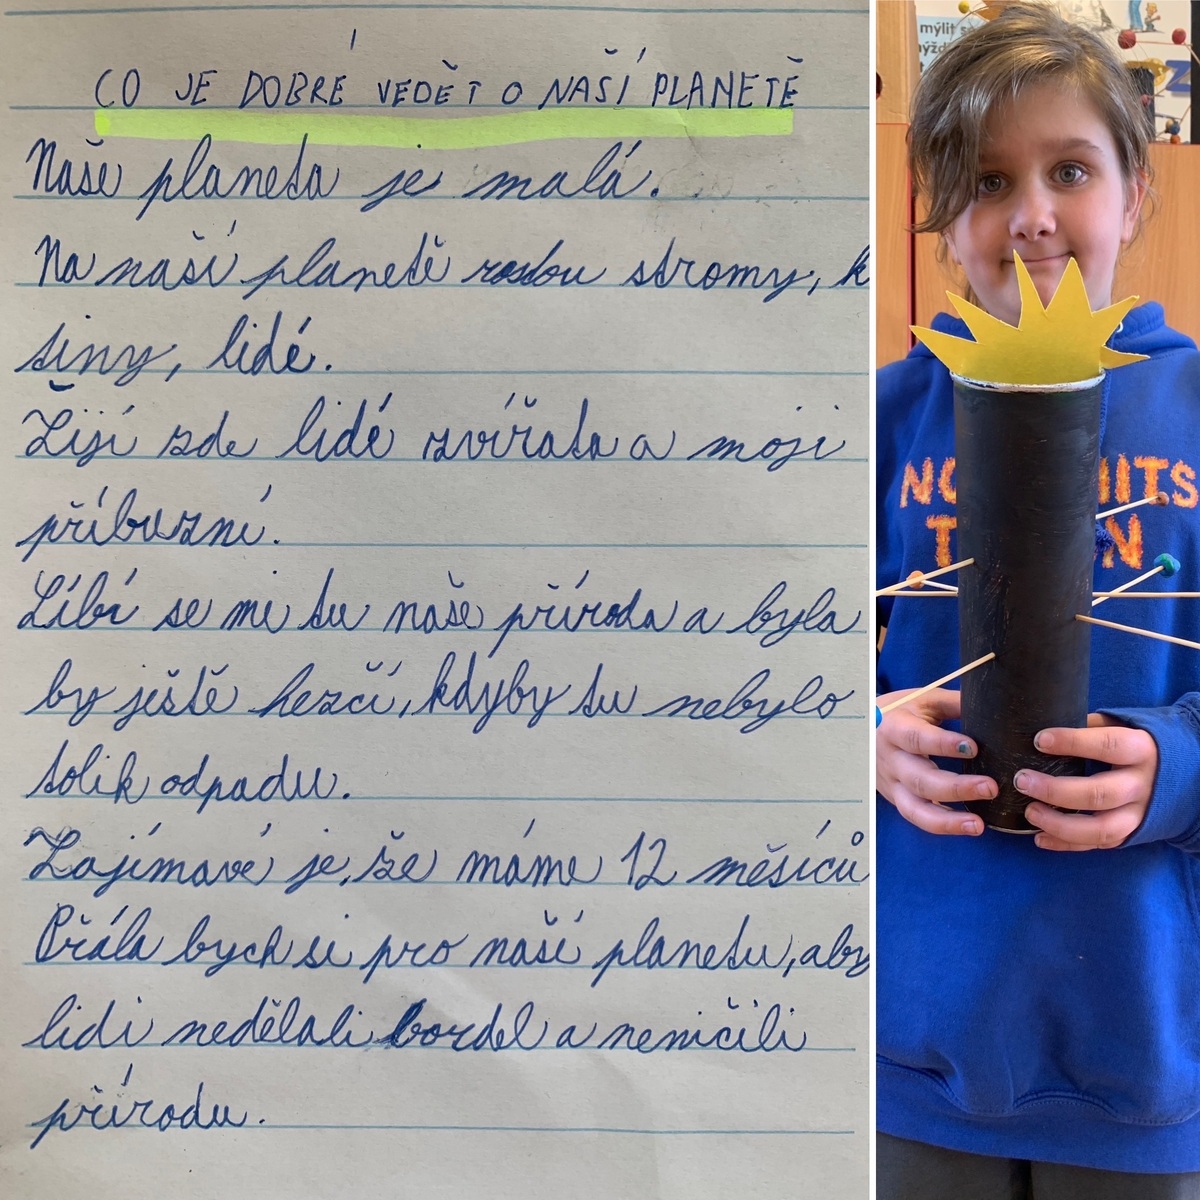 CO JE DOBRÉ VEDĚT O NAŠÍ PLANETĚ
Naše planeta je malá.
Na naší planetě rostou stromy, k
tiny, lidé.
Žijí zde lidé zvířata a moji
příbuzní.
Líbí se mi tu naše příroda a byla
by ještě hezčí, kdyby tu nebylo
tolik odpadu.
Zajímavé je, že máme 12 měsíců
Přála bych si pro naší planetu, aby
lidi nedělali bordel a neničili
přírodu.
mýlit